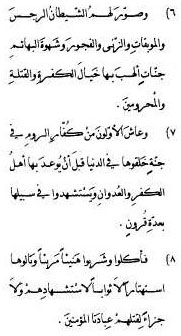 ٦) وصوّر لهم الشيطان الرجس
والموبقات والزنى والفجور وشهوة البهائم
جنّات ألهب بها خيال الكفرة والقتلة
والمحرومين .
٧) وعاش الأولون من كُفّار الروم في
جنّة خلقوها في الدنيا قبل أن يُوعد بها أهل
الكفر والعدوان ويستشهدوا في سبيلها
بعدة قرون .
٨) فأكلوا وشربوا هنيئاً مريئاً ونالوها
استهتاراً لا ثواباً لاستشهادهم ولا
جزاءً لقتلهم عبادنا المؤمنين .